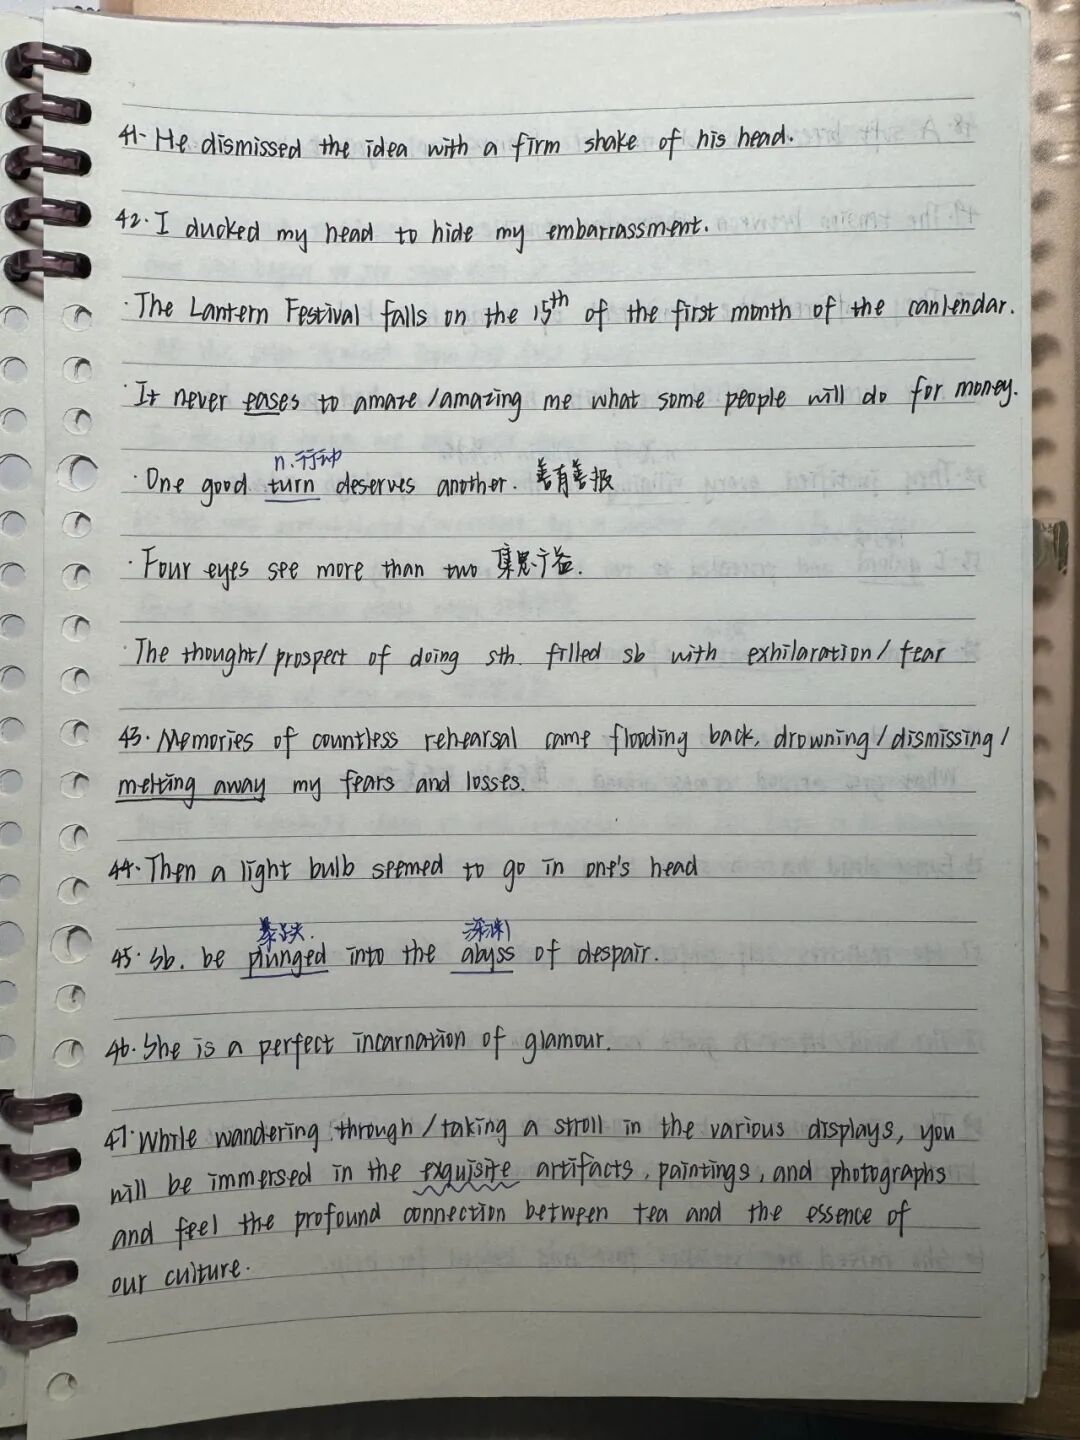 41. He dismissed the idea with a firm shake of his head.
42. I ducked my head to hide my embarrassment.
· The Lantern Festival falls on the 15th of the first month of the canlendar.
· It never eases to amaze/amazing me what some people will do for money.
n.行
· One good turn deserves another. 善有善报
· Four eyes see more than two 集思广益.
· The thought/prospect of doing sth. filled sb with exhilaration/fear
43. Memories of countless rehearsal came flooding back, drowning/dismissing/
melting away my fears and losses.
44. Then a light bulb seemed to go in one's head
暴跌. 深渊
45. Sb. be plunged into the abyss of despair.
46. She is a perfect incarnation of glamour.
47. While wandering through/taking a stroll in the various displays, you
will be immersed in the exquisite artifacts, paintings, and photographs
and feel the profound connection between tea and the essence of
our culture.